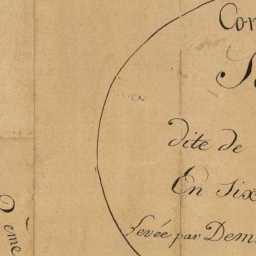 Cor
dite de
En Six
Levée par Dem
2ème